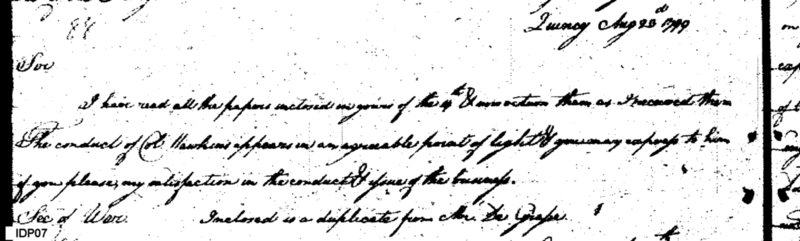 88
Quincy Aug 23d 1799
Sir
I have read all the papers inclosed in yours of the 4th & now return them as I received them
The conduct of Col. Hawkins appears in an agreable point of light & you may express to him
if you please, my satisfaction in the conduct & issue of the business.
Sec of War. Inclosed is a duplicate from Mr. De
IDP07